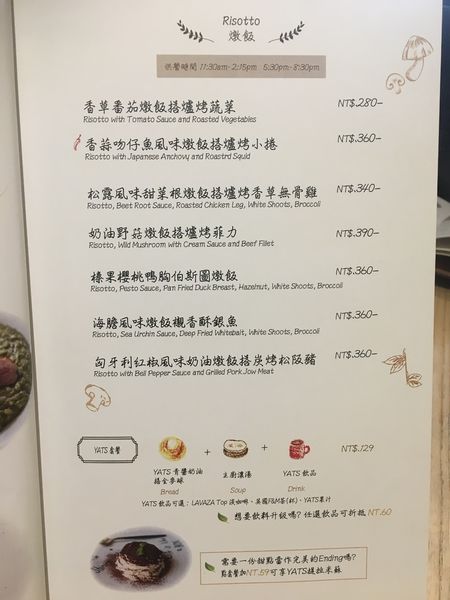 Risotto
燉飯
供餐時間 11:30am-2:15pm 5:30pm-8:30pm
香草番茄燉飯搭爐烤蔬菜 NT$.280-
Risotto with Tomato Sauce and Roasted Vegetables
香蒜吻仔魚風味燉飯搭爐烤小捲 NT$.360-
Risotto with Japanese Anchovy and Roastrd Squid
松露風味甜菜根燉飯搭爐烤香草無骨雞 NT$.340-
Risotto, Beet Root Sauce, Roasted Chicken Leg, White Shoots, Broccoli
奶油野菇燉飯搭爐烤菲力 NT$.390-
Risotto, Wild Mushroom with Cream Sauce and Beef Fillet
榛果櫻桃鴨胸伯斯圖燉飯 NT$.360-
Risotto, Pesto Sauce, Pan Fried Duck Breast, Hazelnut, White Shoots, Broccoli
海膽風味燉飯襯香酥銀魚 NT$.360-
Risotto, Sea Urchin Sauce, Deep Fried Whitebait, White Shoots, Broccoli
匈牙利紅椒風味奶油燉飯搭炭烤松阪豬 NT$.360-
Risotto with Bell Pepper Sauce and Grilled Pork Jow Meat
YATS套餐 + + NT$.129
YATS 青醬奶油 主廚濃湯 YATS 飲品
搭全麥球
Bread Soup Drink
YATS 飲品可選：LAVAZA Top 淡咖啡、英國F&M茶(杯)、YATS果汁
想要飲料升級嗎? 任選飲品可折抵NT.60
需要一份甜點當作完美的Ending嗎?
點套餐加NT.59可享YATS提拉米蘇